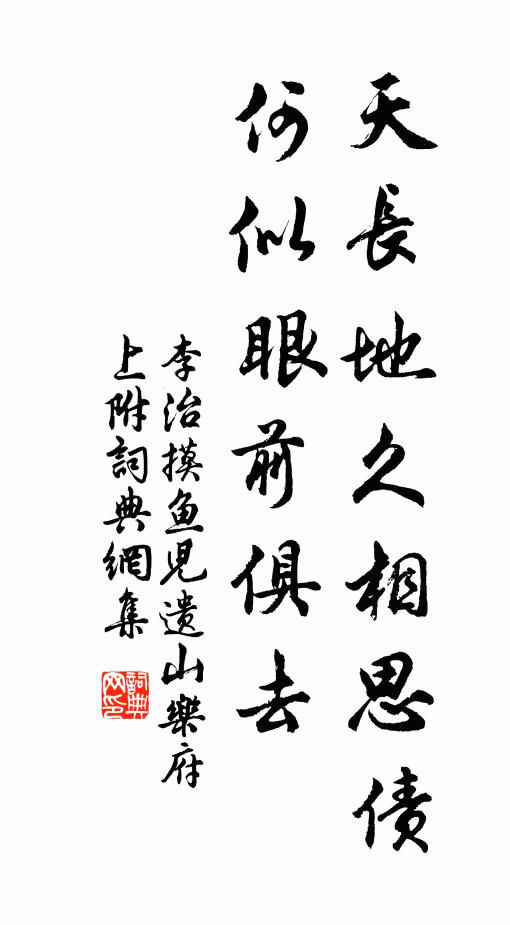 天長地久相思債
何似眼前俱去
李治摸鱼児遗山樂府
上附詞典網集
詞典网印